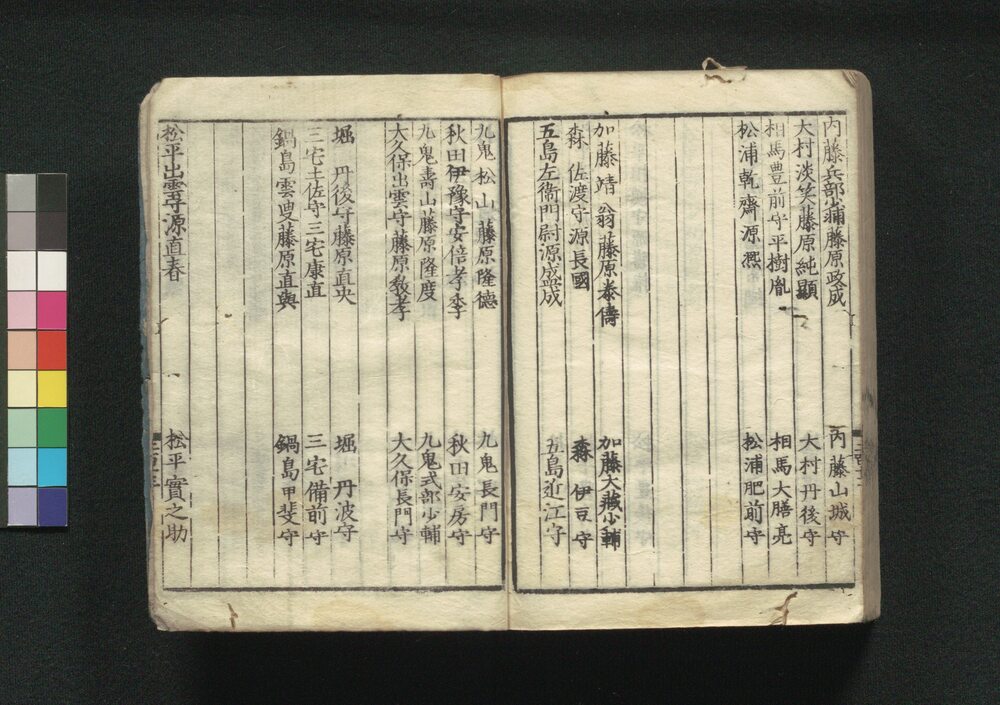 内藤兵部少輔藤原政成 内藤山城守
大村淡笑藤原純顯 大村丹後守
相馬豊前守平樹胤 相馬大膳亮
松浦乾齋源凞 松浦肥前守
加藤靖翁藤原泰儔 加藤大藏少輔
森佐渡守源長國 森伊豆守
五島左衛門尉源盛成 五島近江守
九鬼松山藤原隆德 九鬼長門守
秋田伊豫守安倍孝季 秋田安房守
九鬼壽山藤原隆度 九鬼式部少輔
大久保出雲守藤原教孝 大久保長門守
堀丹後守藤原直央 堀丹波守
三宅土佐守三宅康直 三宅備前守
鍋島雲叟藤原直與 鍋島甲斐守
松平出雲守源直春 松平實之助